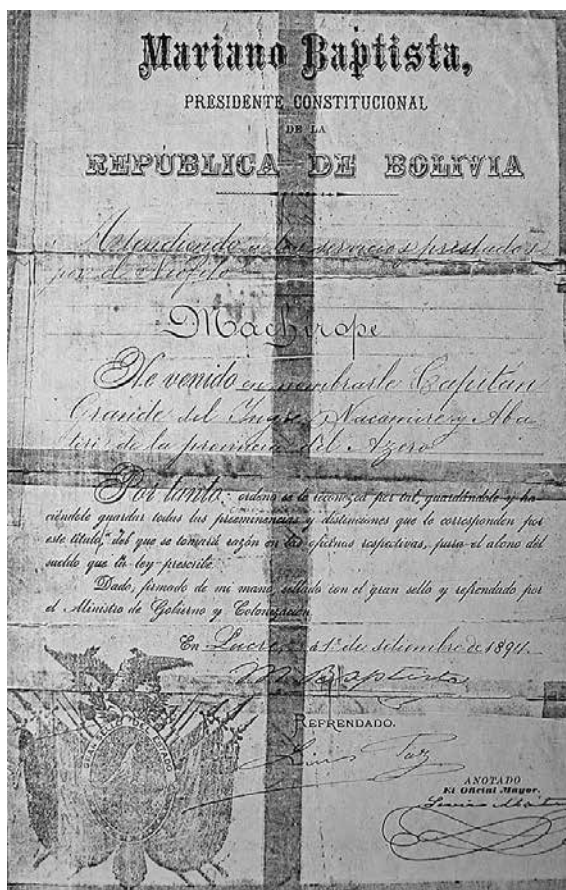 Mariano Baptista,
PRESIDENTE CONSTITUCIONAL
DE LA
REPÚBLICA DE BOLIVIA
Atendiendo a los servicios prestados
por el Neófito
Machirope
He venido en nombrarle Capitán
Grande del Ingre, Ñacamiri y Aba
tiri de la provincia del Azero
Por tanto: ordeno se le reconozca por tal, guardándole y ha-
ciéndole guardar todas las preeminencias y distinciones que le corresponden por
este título, del que se tomará razón en las oficinas respectivas, para el abono del
sueldo que la ley prescribe.
Dado, firmado de mi mano, sellado con el gran sello y refrendado por
el Ministro de Gobierno y Colonización.
En Sucre, a 1º de setiembre de 1894.
M Baptista
REFRENDADO.
Luis Paz
GRAN SELLO DEL ESTADO
ANOTADO
El Oficial Mayor.